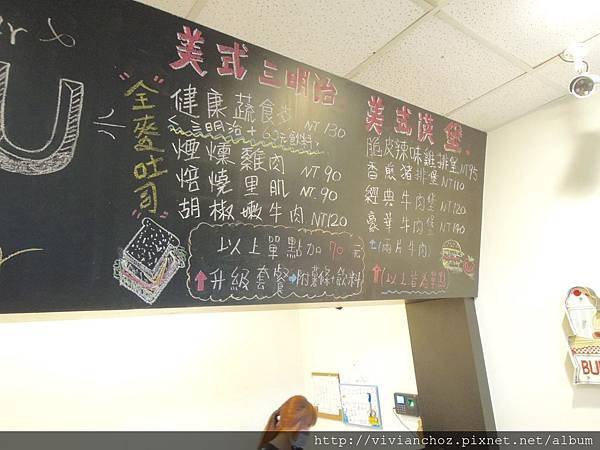 U
"全麥吐司"
美式三明治
健康蔬食 NT 130
<三明治+60元飲料>
煙燻雞肉 NT 90
焙燒里肌 NT. 90
胡椒嫩牛肉 NT120
以上單點加 70 元
↑升級套餐→附薯條+飲料
美式漢堡.
脆皮辣味雞排堡 NT95
香煎豬排堡 NT110
經典牛肉堡 NT120
豪華牛肉堡 NT140
↑(兩片牛肉)
↑(以上皆為單點)
BU
http://vivianchoz.pixnet.net/album